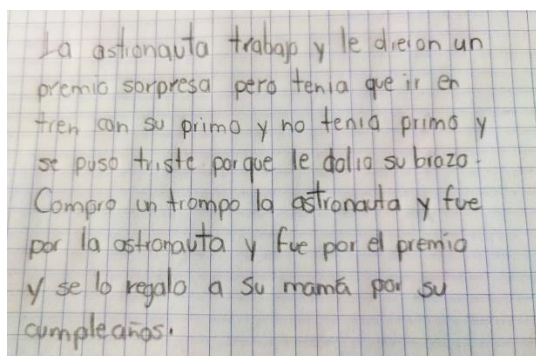 La astronauta trabajo y le dieron un
premio sorpresa pero tenia que ir en
tren con su primo y no tenia primo y
se puso triste porque le dolio su brazo.
Compro un trompo la astronauta y fue
por la astronauta y fue por el premio
y se lo regalo a su mamá por su
cumpleaños.